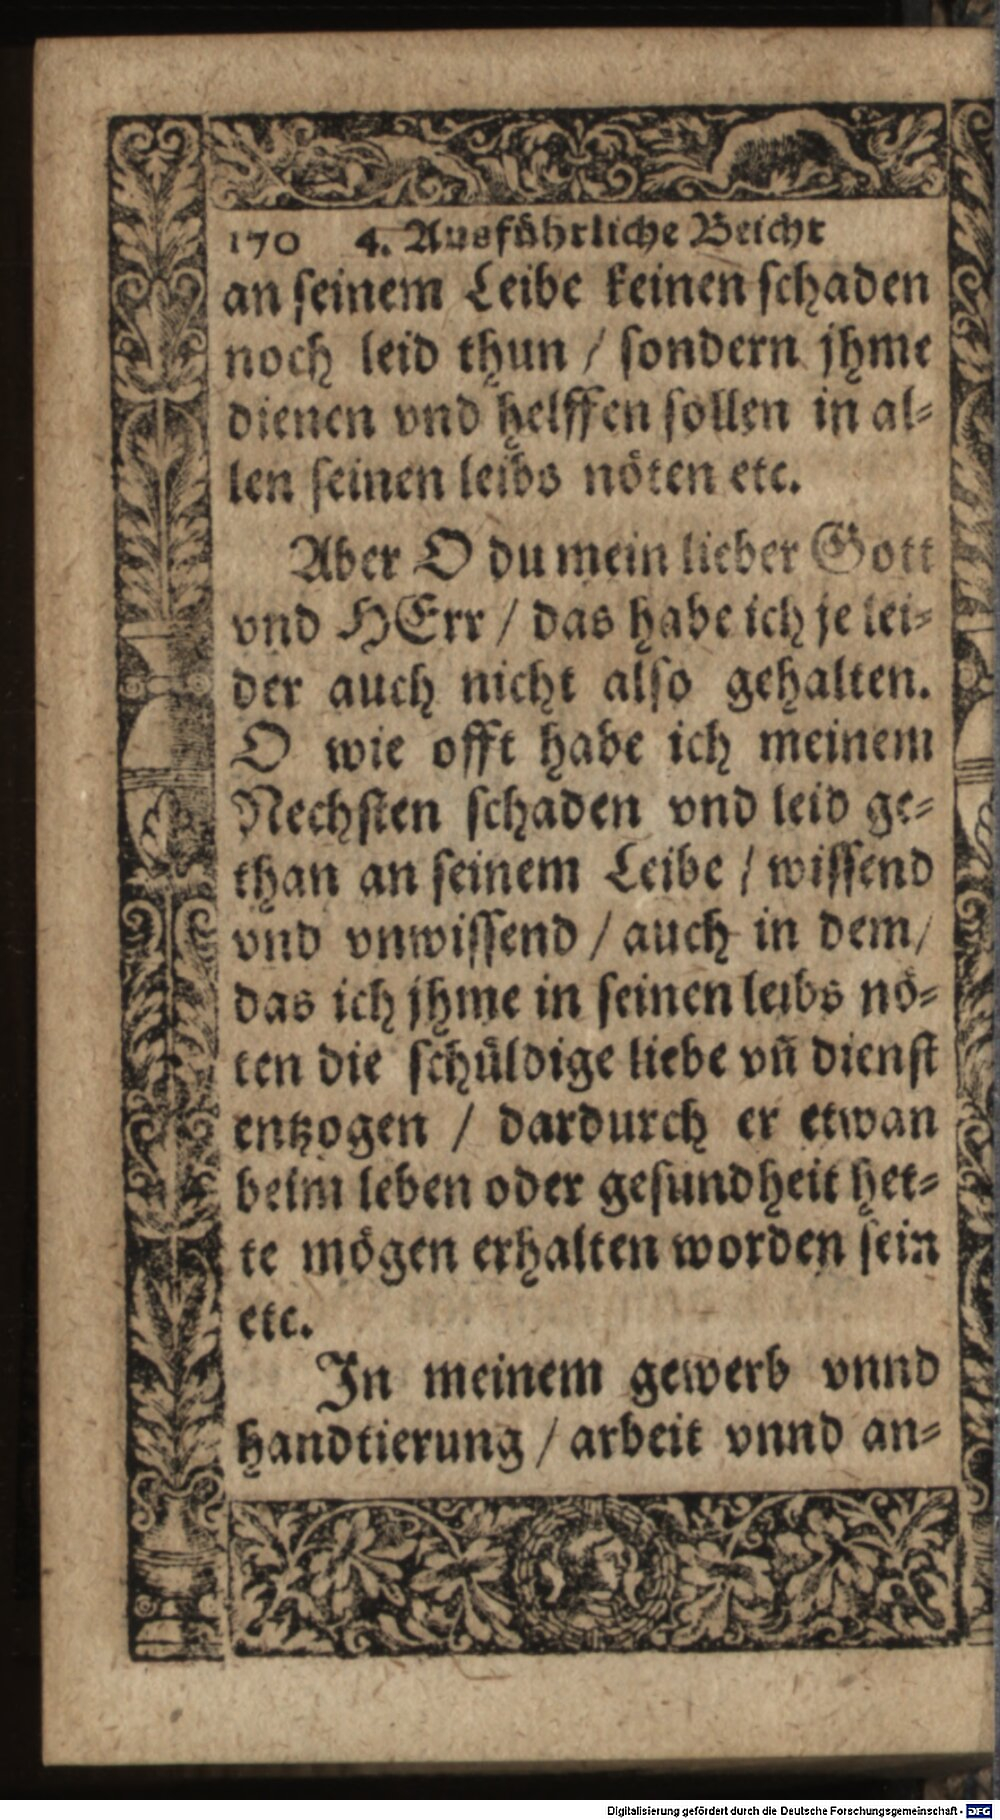 170 4. Ausführliche Beicht
an seinem Leibe keinen schaden
noch leid thun / sondern jhme
dienen vnd helffen sollen in al⸗
len seinen leibs nöten etc.
Aber O du mein lieber Gott
vnd HErr / das habe ich je lei⸗
der auch nicht also gehalten.
O wie offt habe ich meinem
Nechsten schaden vnd leid ge⸗
than an seinem Leibe / wissend
vnd vnwissend / auch in dem /
das ich jhme in seinen leibs nö⸗
ten die schüldige liebe vn̄ dienst
entzogen / dardurch er etwan
beim leben oder gesundheit het⸗
te mögen erhalten worden sein
etc.
In meinem gewerb vnnd
handtierung / arbeit vnnd an⸗
Digitalisierung gefördert durch die Deutsche Forschungsgemeinschaft - DFG